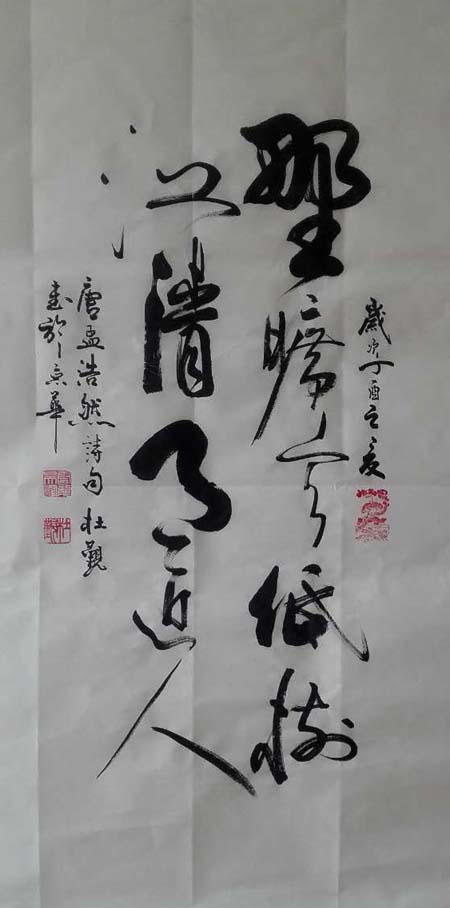 歲次丁酉之夏
野曠天低樹
江清月近人
唐孟浩然詩句 杜
書於京華